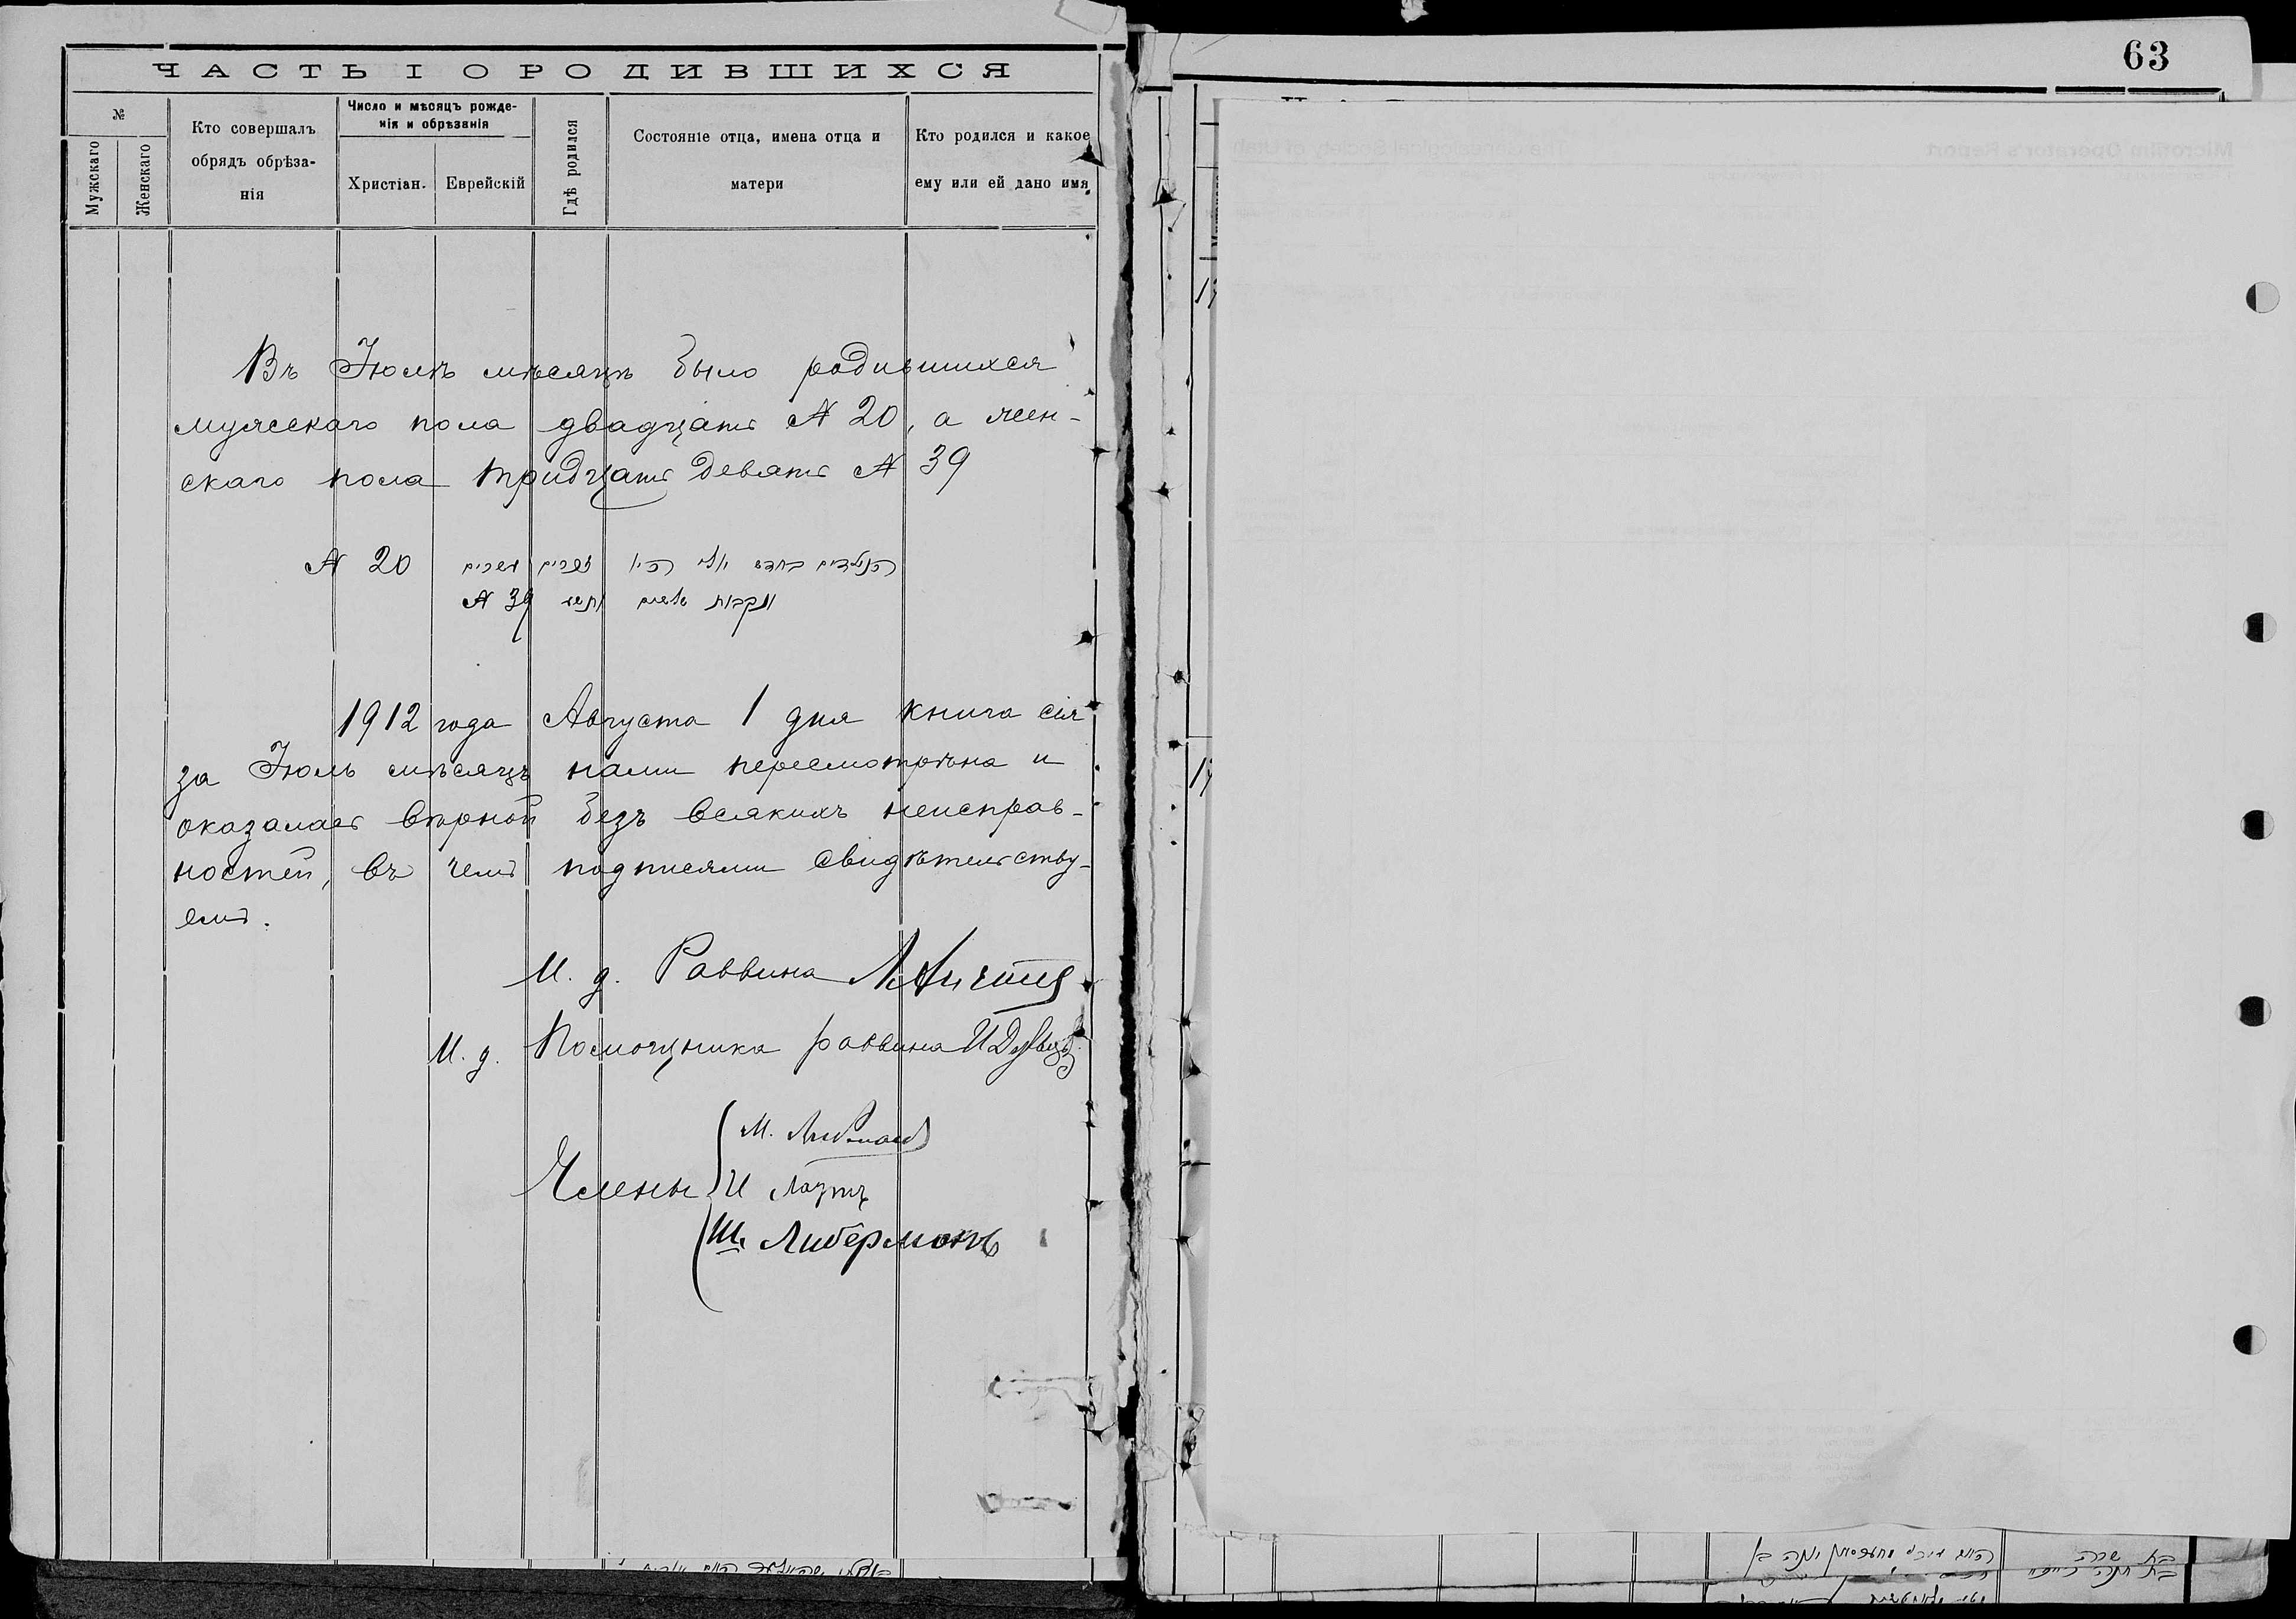 ЧАСТЬ I О РОДИВШИХСЯ
№
Мужскаго
Женскаго
Кто совершалъ
обрядъ обрѣза-
нія
Число и мѣсяцъ рожде-
нія и обрѣзанія
Христіан.
Еврейскій
Гдѣ родился
Состояніе отца, имена отца и
матери
Кто родился и какое
ему или ей дано имя
Въ Іюлѣ мѣсяцѣ было родившихся
мужскаго пола двадцать № 20, а жен-
скаго пола тридцать девять № 39
הנולדים בחדש יולי זכרים עשרים № 20
נקבות שלשים ותשע № 39
1912 года Августа 1 дня книга сія
за Іюль мѣсяцъ нами пересмотрѣна и
оказалась вѣрной безъ всякихъ неисправ-
ностей, въ чемъ подписями свидѣтельству-
емъ.
И. д. Раввина
И. д. Помощника раввина
Члены
М.
И
Ш. Либерманъ
63
Microfilm Operator's Report
The Genealogical Society of Utah